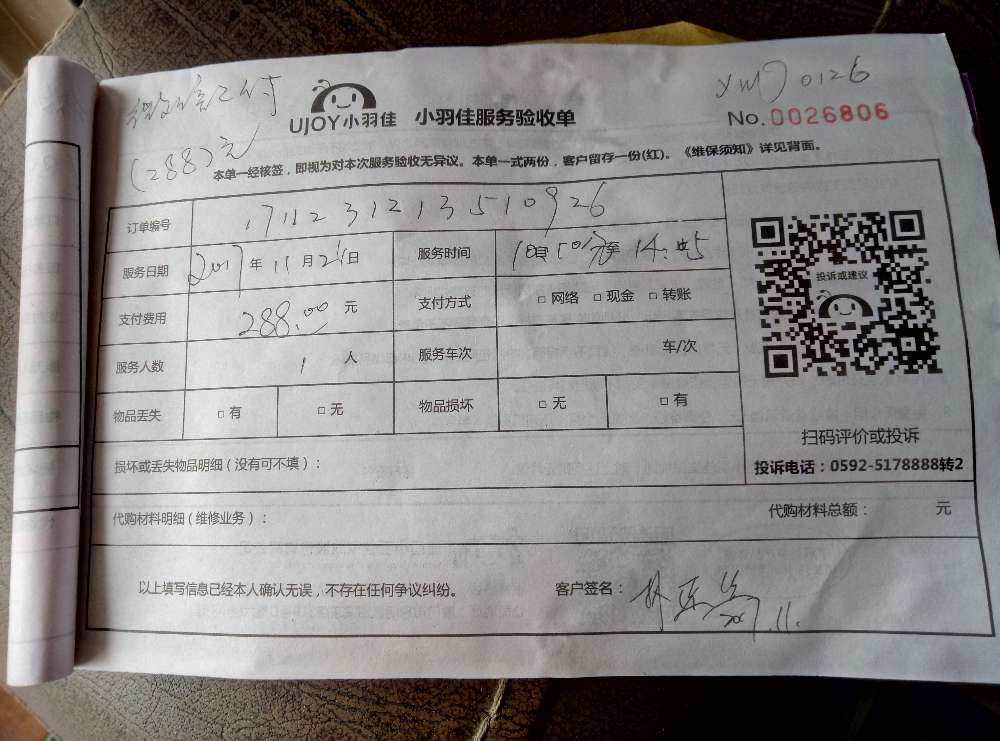 微信已付
(288)元
UJOY小羽佳 小羽佳服务验收单
0126
No.0026806
本单一经核签，即视为对本次服务验收无异议。本单一式两份，客户留存一份(红)。《维保须知》详见背面。
订单编号 1711231213510926
服务日期 2017年11月2日 服务时间 至 14:
支付费用 288.00元 支付方式 □网络 □现金 □转账
服务人数 1 人 服务车次 车/次
物品丢失 □有 □无 物品损坏 □无 □有
投诉或建议
扫码评价或投诉
投诉电话：0592-5178888转2
损坏或丢失物品明细(没有可不填)：
代购材料明细(维修业务)： 代购材料总额： 元
以上填写信息已经本人确认无误，不存在任何争议纠纷。 客户签名：